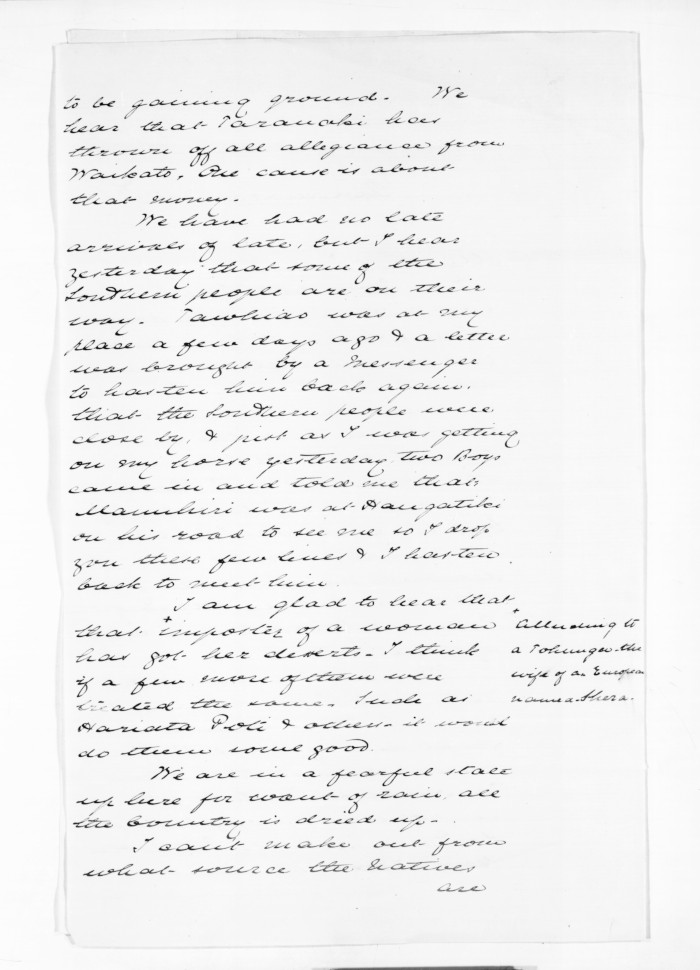 to be gaining ground. We
hear that Taranaki has
thrown off all allegiance from
Waikato. One cause is about
that money.
We have had no late
arrivals of late, but I hear
yesterday that some of the
Southern people are on their
way. Tawhiao was at my
place a few days ago & a letter
was brought by a Messenger
to hasten him back again.
that the Southern people were
close by, & just as I was getting
on my horse yesterday two Boys
came in and told me that
Manuhiri was at Hangatiki
on his road to see me so I drop
you these few lines & I hasten
back to meet him.
I am glad to hear that
that + imposter of a woman
has got her deserts - I think
if a few more of them were
treated the same. Such as
Hariata Poti & others - it would
do them some good.
+ Alluding to
a Tohunga - the
wife of an European
named
We are in a fearful state
up here for want of rain, all
the Country is dried up -
I can't make out from
what source the Natives
are